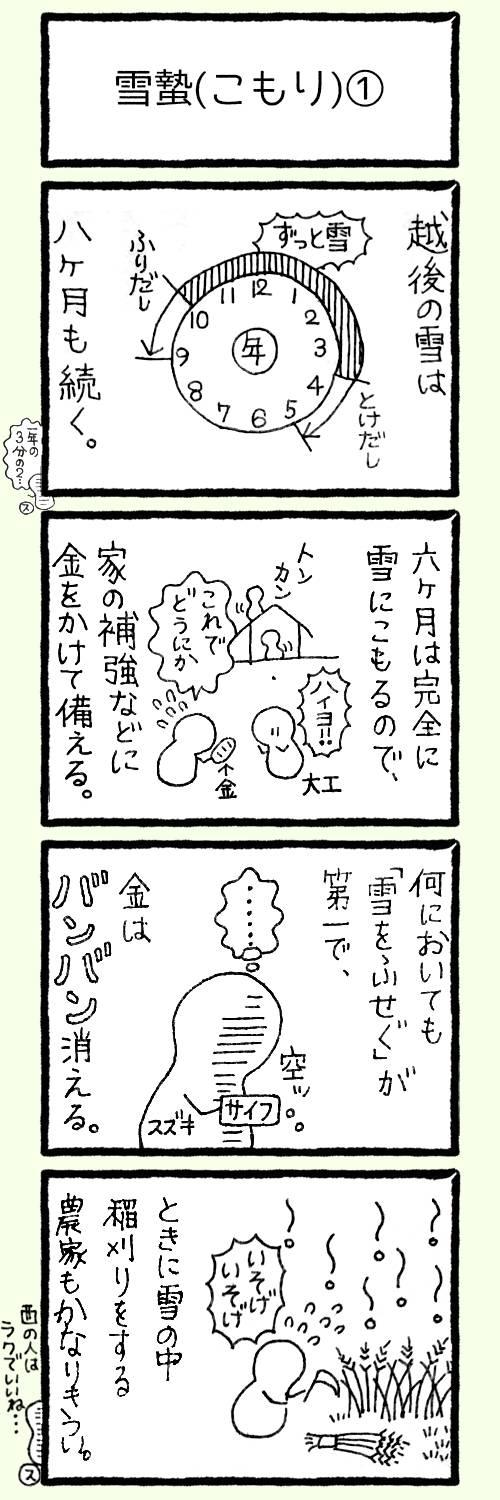 雪蟄(こもり)①
越後の雪は
ずっと雪
ふりだし
12
1
2
3
4
5
6
7
8
9
10
11
年
とけだし
八ヶ月も続く。
一年の
3分の2…
ス
六ヶ月は完全に
雪にこもるので、
トン
カン
これで
どうにか
ハイヨ!!
金
大工
家の補強などに
金をかけて備える。
何においても
「雪をふせぐ」が
第一で、
………
空ッ。。
サイフ
スズキ
金は
バンバン消える。
いそげ
いそげ
ときに雪の中
稲刈りをする
農家もかなりキツい。
西の人は
ラクでいいね…
ス